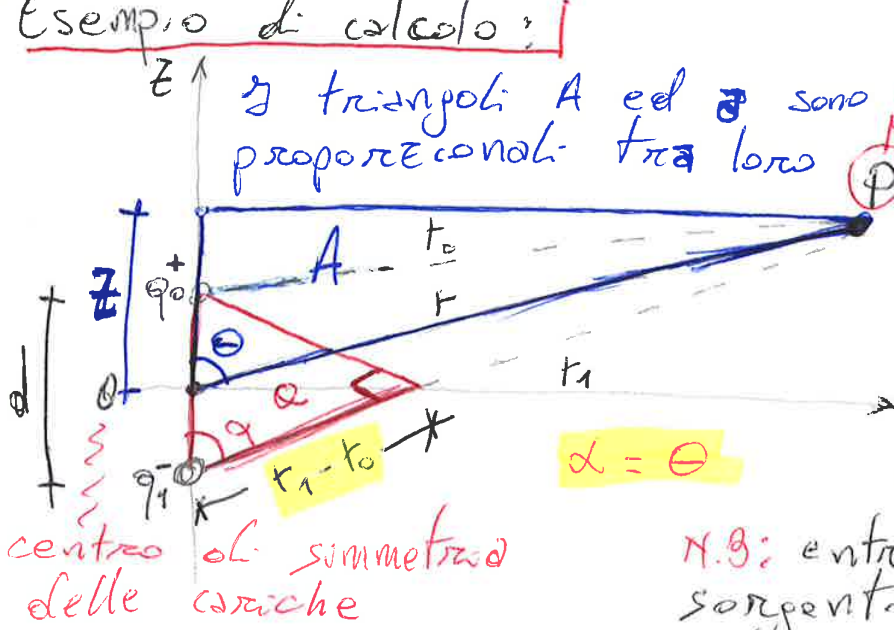 Esempio di calcolo:
Z
I triangoli A ed a sono
proporzionali tra loro
P
r₀
A
q₀⁺
Z
r
θ
d
O
a
r₁
α
q₁⁻
r₁-r₀
α = θ
centro di simmetria
delle cariche
N.B: entr
sorgent